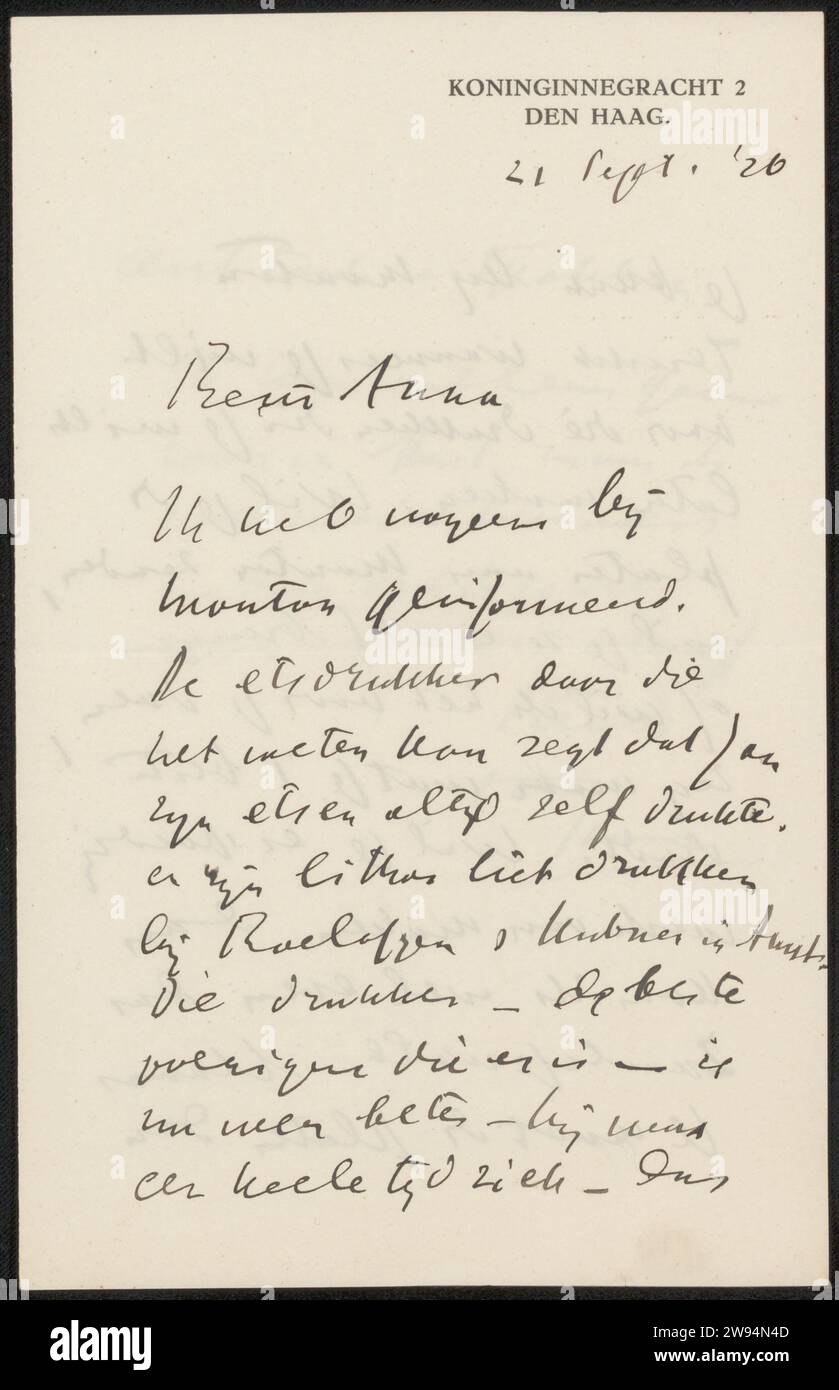 KONINGINNEGRACHT 2
DEN HAAG.
21 Sept. '26
Beste Anna
Ik heb nogeens bij
Mouton geinformeerd.
De etsdrukker daar die
het weten kan zegt dat Jan
zijn etsen altijd zelf drukte.
en zijn lithos liet drukken
bij Roelofzen & Hubner in Amst.
Die drukker – de beste
overigens die er is – is
nu weer beter – hij was
een heele tijd ziek – Dus
alamy
Image ID: 2W94N4D
www.alamy.com